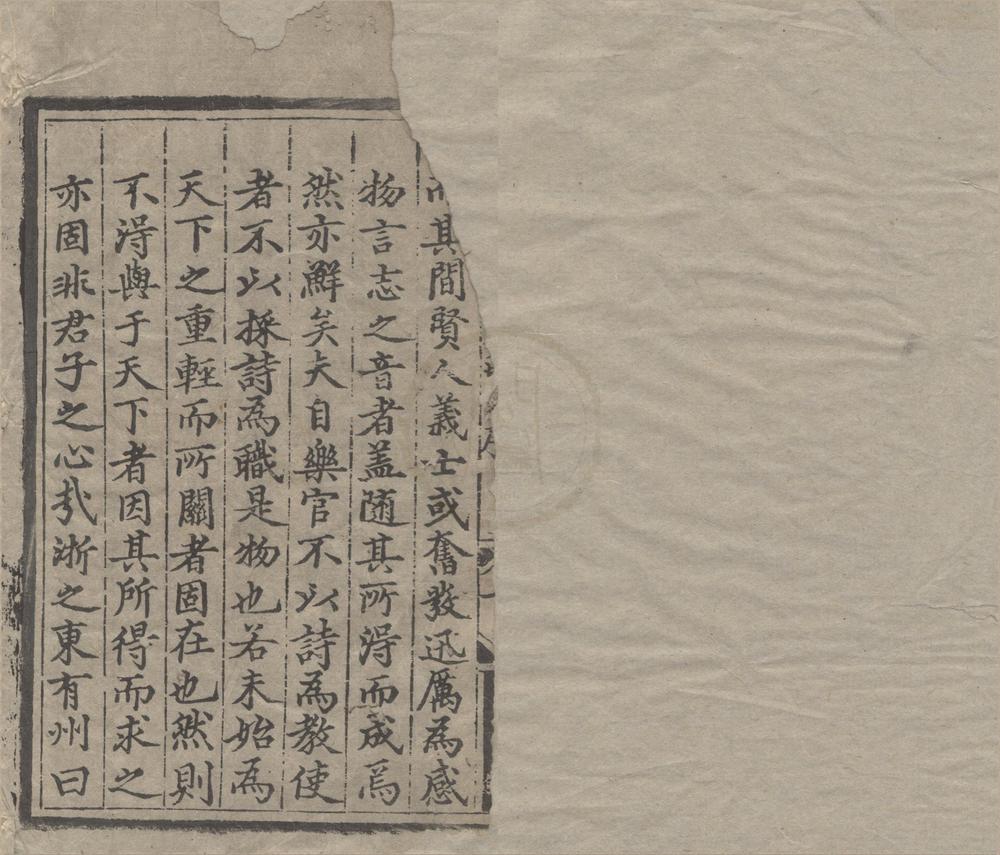 其間賢人義士或奮發迅厲為感
物言志之音者蓋随其所淂而成焉
然亦鮮矣夫自樂官不以詩為教使
者不以採詩為職是物也若未始為
天下之重輕而所關者固在也然則
不淂與于天下者因其所得而求之
亦固非君子之心㢤浙之東有州曰